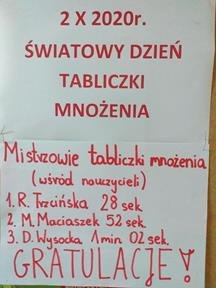 2 X 2020r.
ŚWIATOWY DZIEŃ
TABLICZKI
MNOŻENIA
Mistrzowie tabliczki mnożenia
(wśród nauczycieli)
1. R. Trzcińska 28 sek.
2. M. Maciaszek 52 sek.
3. D. Wysocka 1 min 02 sek.
GRATULACJE!